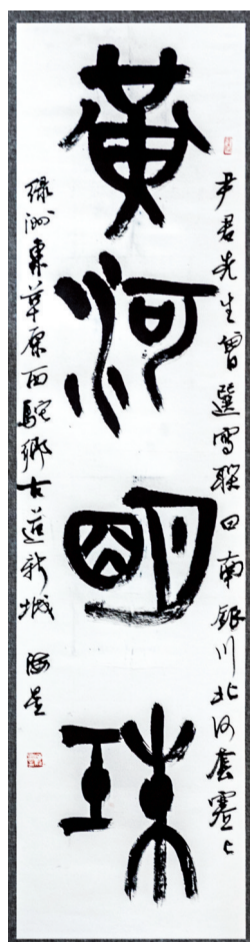 黃河明珠
尹君先生曾選寫联曰南银川北河套塞上
绿洲東草原西駝鄉古道新城 海